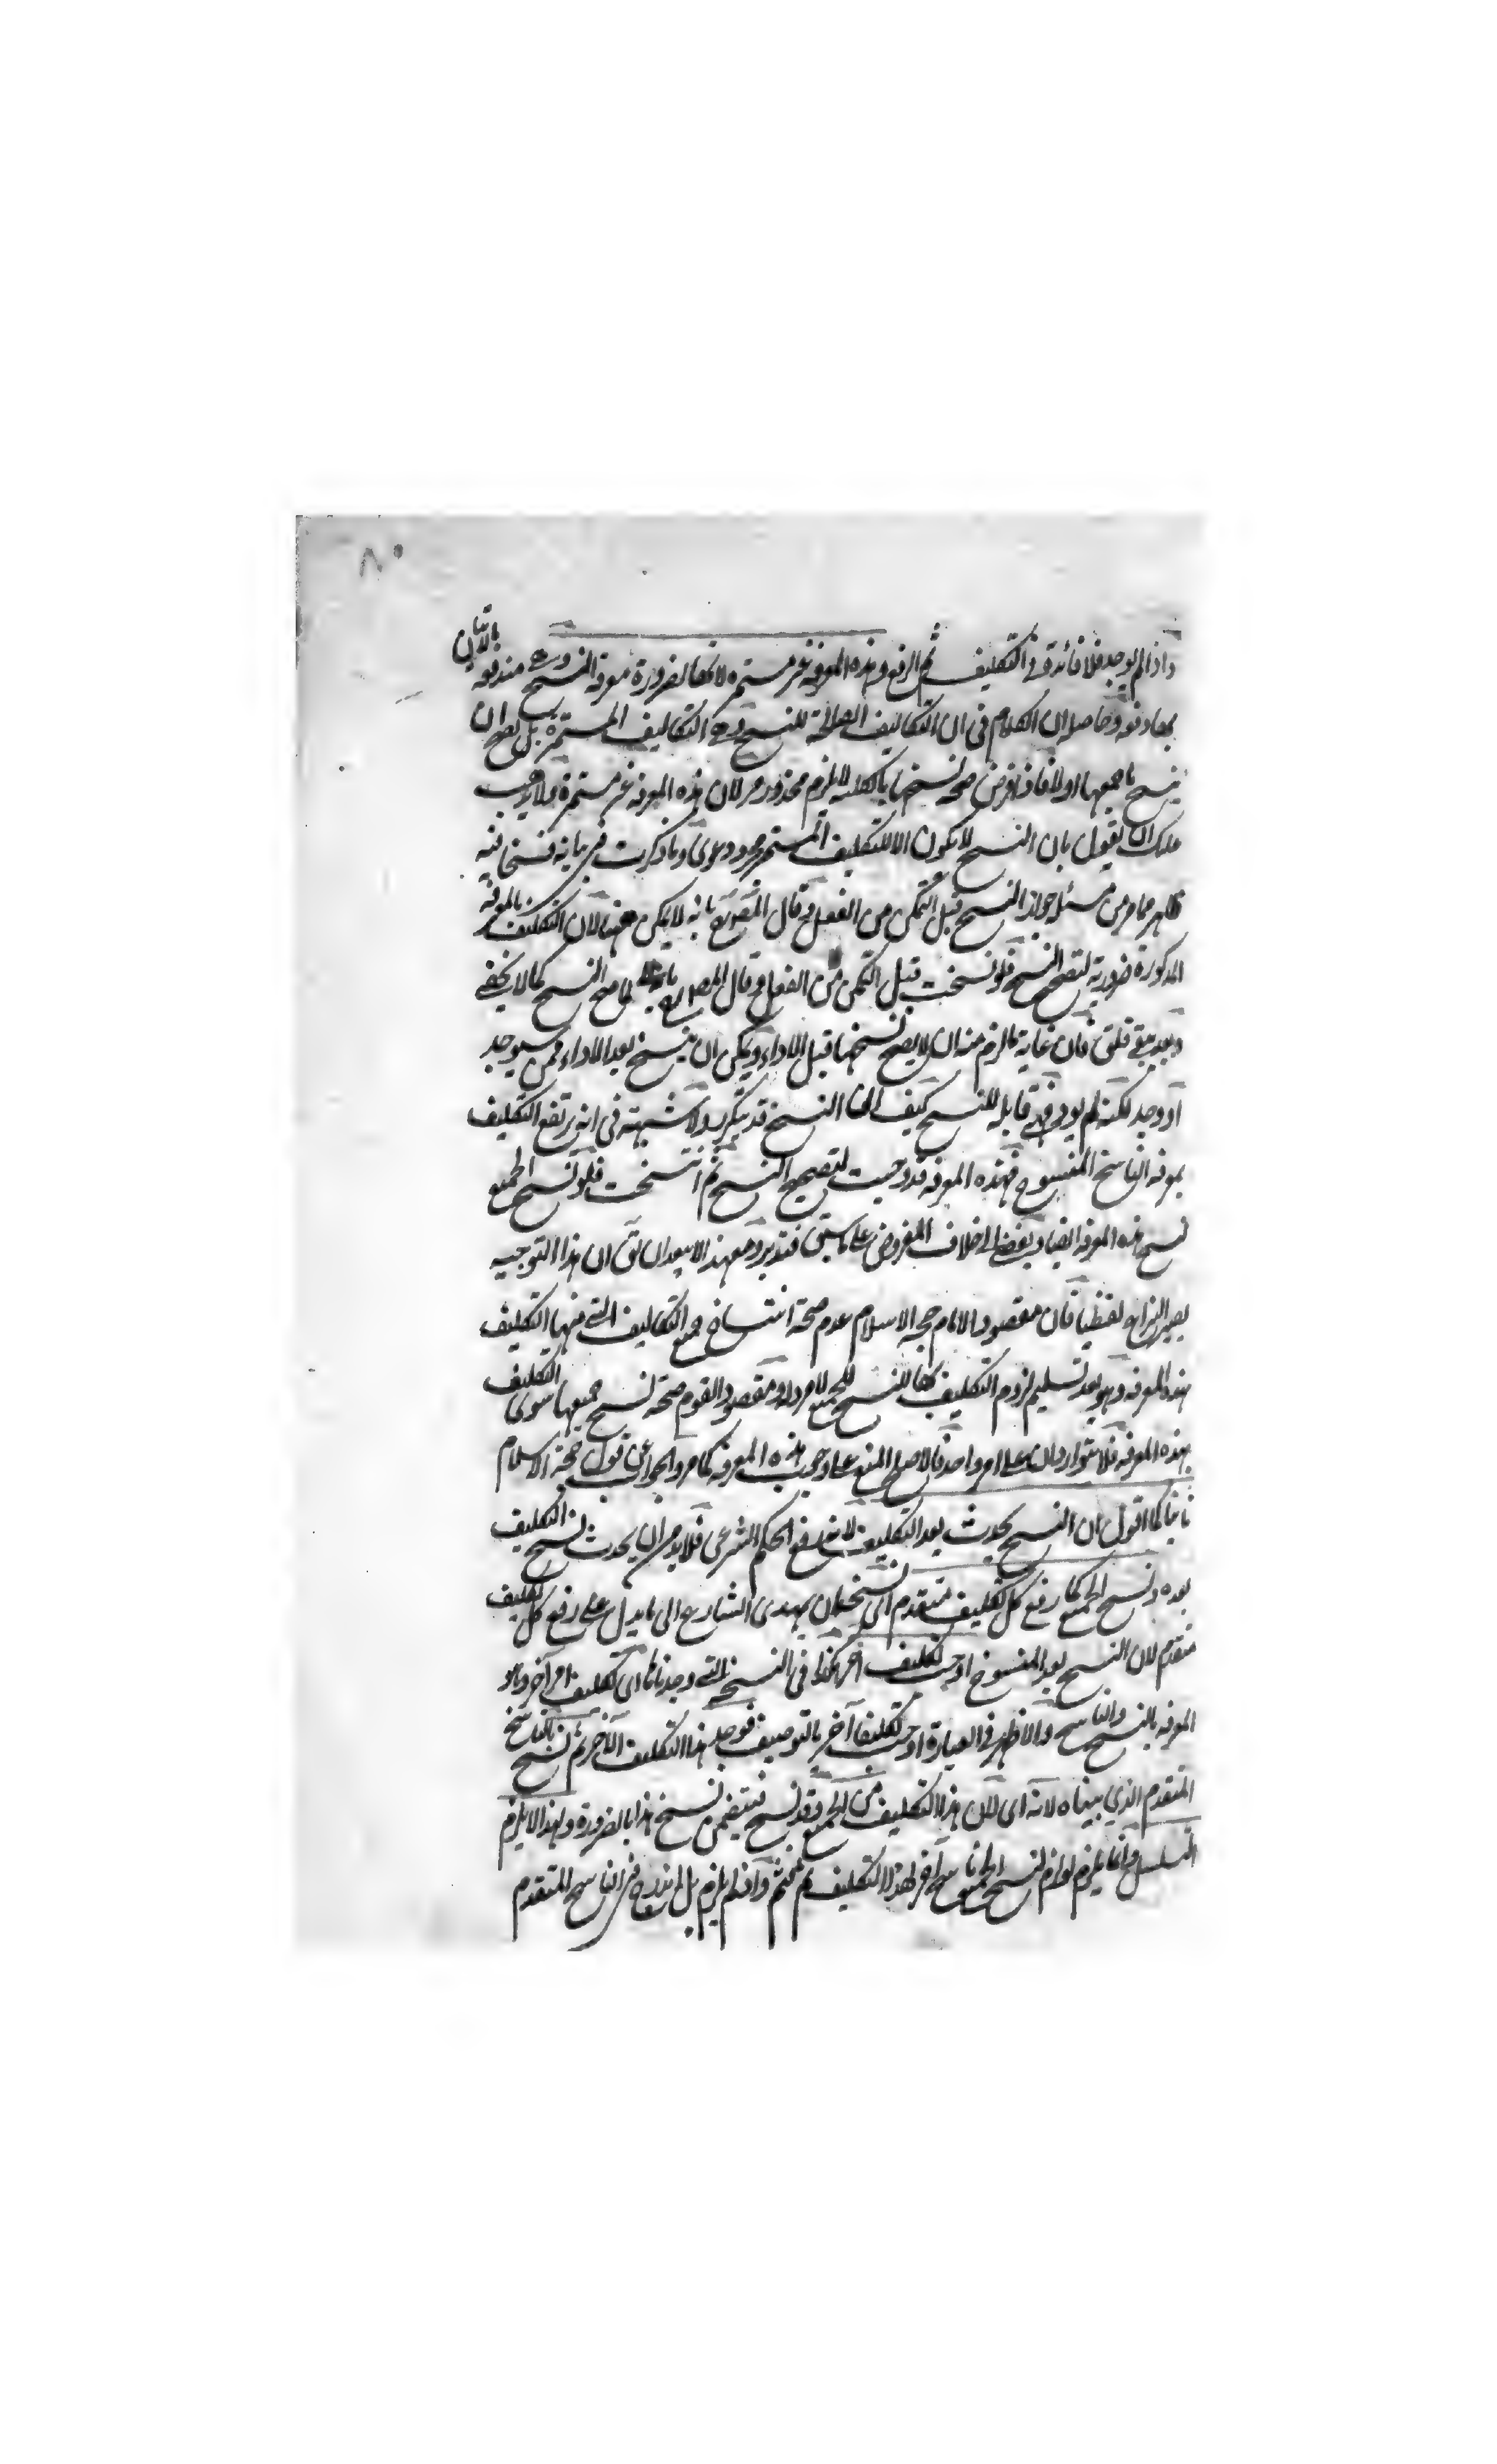 ٨٠
واذا لم يوجد فلا فائدة في التكليف ثم الرفع وهذه المعرفة غير مستمرة لانها لضرورة معرفة النسخ وهي مندفعة بالاتيان
وحاصله ان الكلام في ان التكاليف الصالحة للنسخ وهي التكاليف المستمرة بل يصح ان
ينسخ باجمعها اولا فاذا فرض صحة نسخها بالكلية لا يلزم محذور لان هذه المعرفة غير مستمرة ولا يذهب
عليك ان القول بان النسخ لا يكون الا للتكليف المستمر مجرد دعوى وما ذكرت في بيانه فسخافته
ظاهر مما مر من مسئلة جواز النسخ قبل التمكن من الفعل وقال المصنف بانه لا يمكن ههنا لان التكليف بالمعرفة
المذكورة ضرورية لتصحيح النسخ فلو نسخت قبل التمكن من الفعل لما صح النسخ كما لا يخفى
وبعد بقي قلق فان غاية ما لزم منه ان لا يصح نسخها قبل الاداء ويمكن ان ينسخ بعد الاداء فمن سيوجد
او وجد لكنه لم يؤد فهي قابلة للنسخ كيف النسخ قد يتكرر ولا شبهة في انه يرتفع التكليف
بمعرفة الناسخ المنسوخ فهذه المعرفة قد وجبت لتصحيح النسخ ثم انتسخت فلو نسخ الجميع
نسخ هذه المعرفة ايضا ويفضي الى خلاف المفروض على ما سبق فتدبر ومع هذا لا يبعد ان يق ان هذا التوجيه
يصير النزاع لفظيا فان مقصود الامام حجة الاسلام عدم صحة انتساخ جميع التكاليف التي منها التكليف
بهذه المعرفة وهو بعد تسليم لزوم التكليف بها للنسخ للجميع لا مرد له ومقصود القوم صحة نسخ جميعها سوى التكليف
بهذه المعرفة فلا يتواردان على امر واحد فالاصلح المنع على وجوب هذه المعرفة كما مر والجواب عن قول حجة الاسلام
ثانيا كما اقول ان النسخ يحدث بعد التكليف لانه رفع الحكم الشرعي فلا بد من ان يحدث نسخ التكليف
بعده ونسخ الجميع كما رفع كل تكليف متقدم اي نسخه بان يهدي الشارع الى ما يدل على رفع كل تكليف
متقدم لان النسخ بعد المنسوخ اوجب تكليف آخر هكذا في النسخة التي وجدناها اي تكليف امر آخر وهو
المعرفة بالنسخ والناسخ والاظهر في العبارة اوجب تكليفا آخر بالتوصيف فوجد هذا التكليف الآخر ثم نسخ بالناسخ
المتقدم الذي بيناه لانه اي لان هذا التكليف من الجميع وقد نسخ فيتضمن نسخ هذا بالضرورة ولهذا لا يلزم
التسلسل وانما يلزم لو لزم لنسخ الجميع ناسخ آخر لهذا التكليف ثم وثم واذا لم يلزم بل اندرج في الناسخ المتقدم